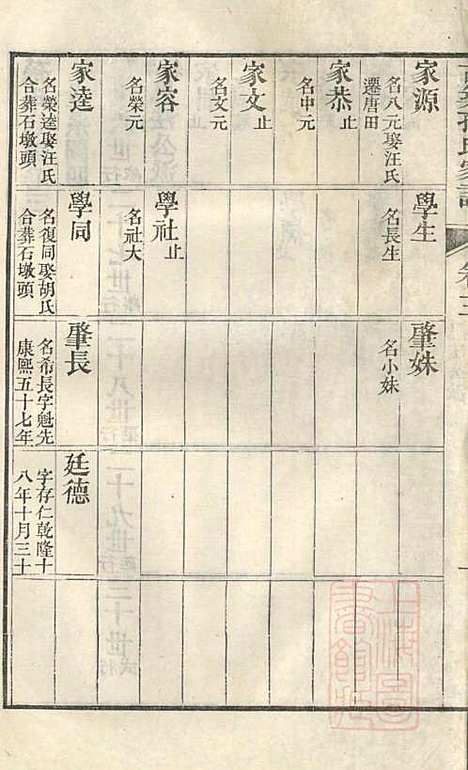 家源
名八元娶汪氏
遷唐田
家恭止
名中元
家文止
名文元
家容
名榮元
家逵
名榮逵娶汪氏
合葬石墩頭
學生
名長生
學社止
名社大
學同
名復同娶胡氏
合葬石墩頭
肇妹
名小妹
肇長
名希長字魁先
康熙五十七年
廷德
字存仁乾隆十
八年十月三十